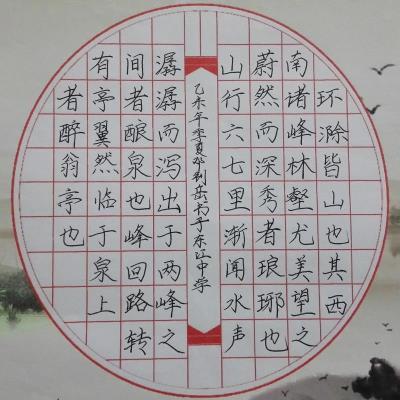 环滁皆山也其西
南诸峰林壑尤美望之
蔚然而深秀者琅琊也
山行六七里渐闻水声
乙未年季夏邓利岳书于东江中学
潺潺而泻出于两峰之
间者酿泉也峰回路转
有亭翼然临于泉上
者醉翁亭也